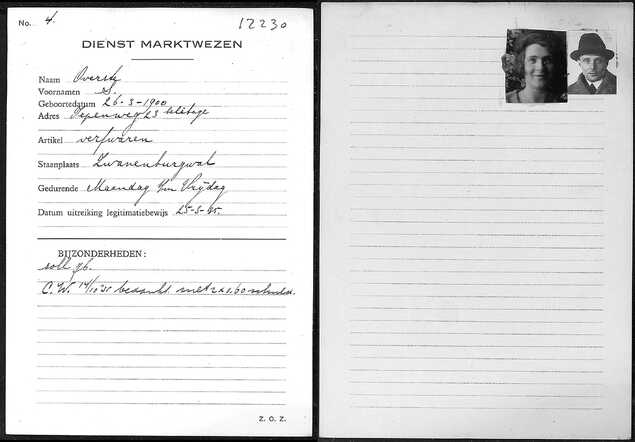 No. 4. 12230
DIENST MARKTWEZEN
Naam Overste
Voornamen S.
Geboortedatum 26-3-1900
Adres Iepenweg 23 belétage
Artikel verfwaren
Staanplaats Zwanenburgwal
Gedurende Maandag t/m Vrijdag
Datum uitreiking legitimatiebewijs 25-5-
BIJZONDERHEDEN:
soll
C.W. 14/10 bedankt met schuld.
Z. O. Z.